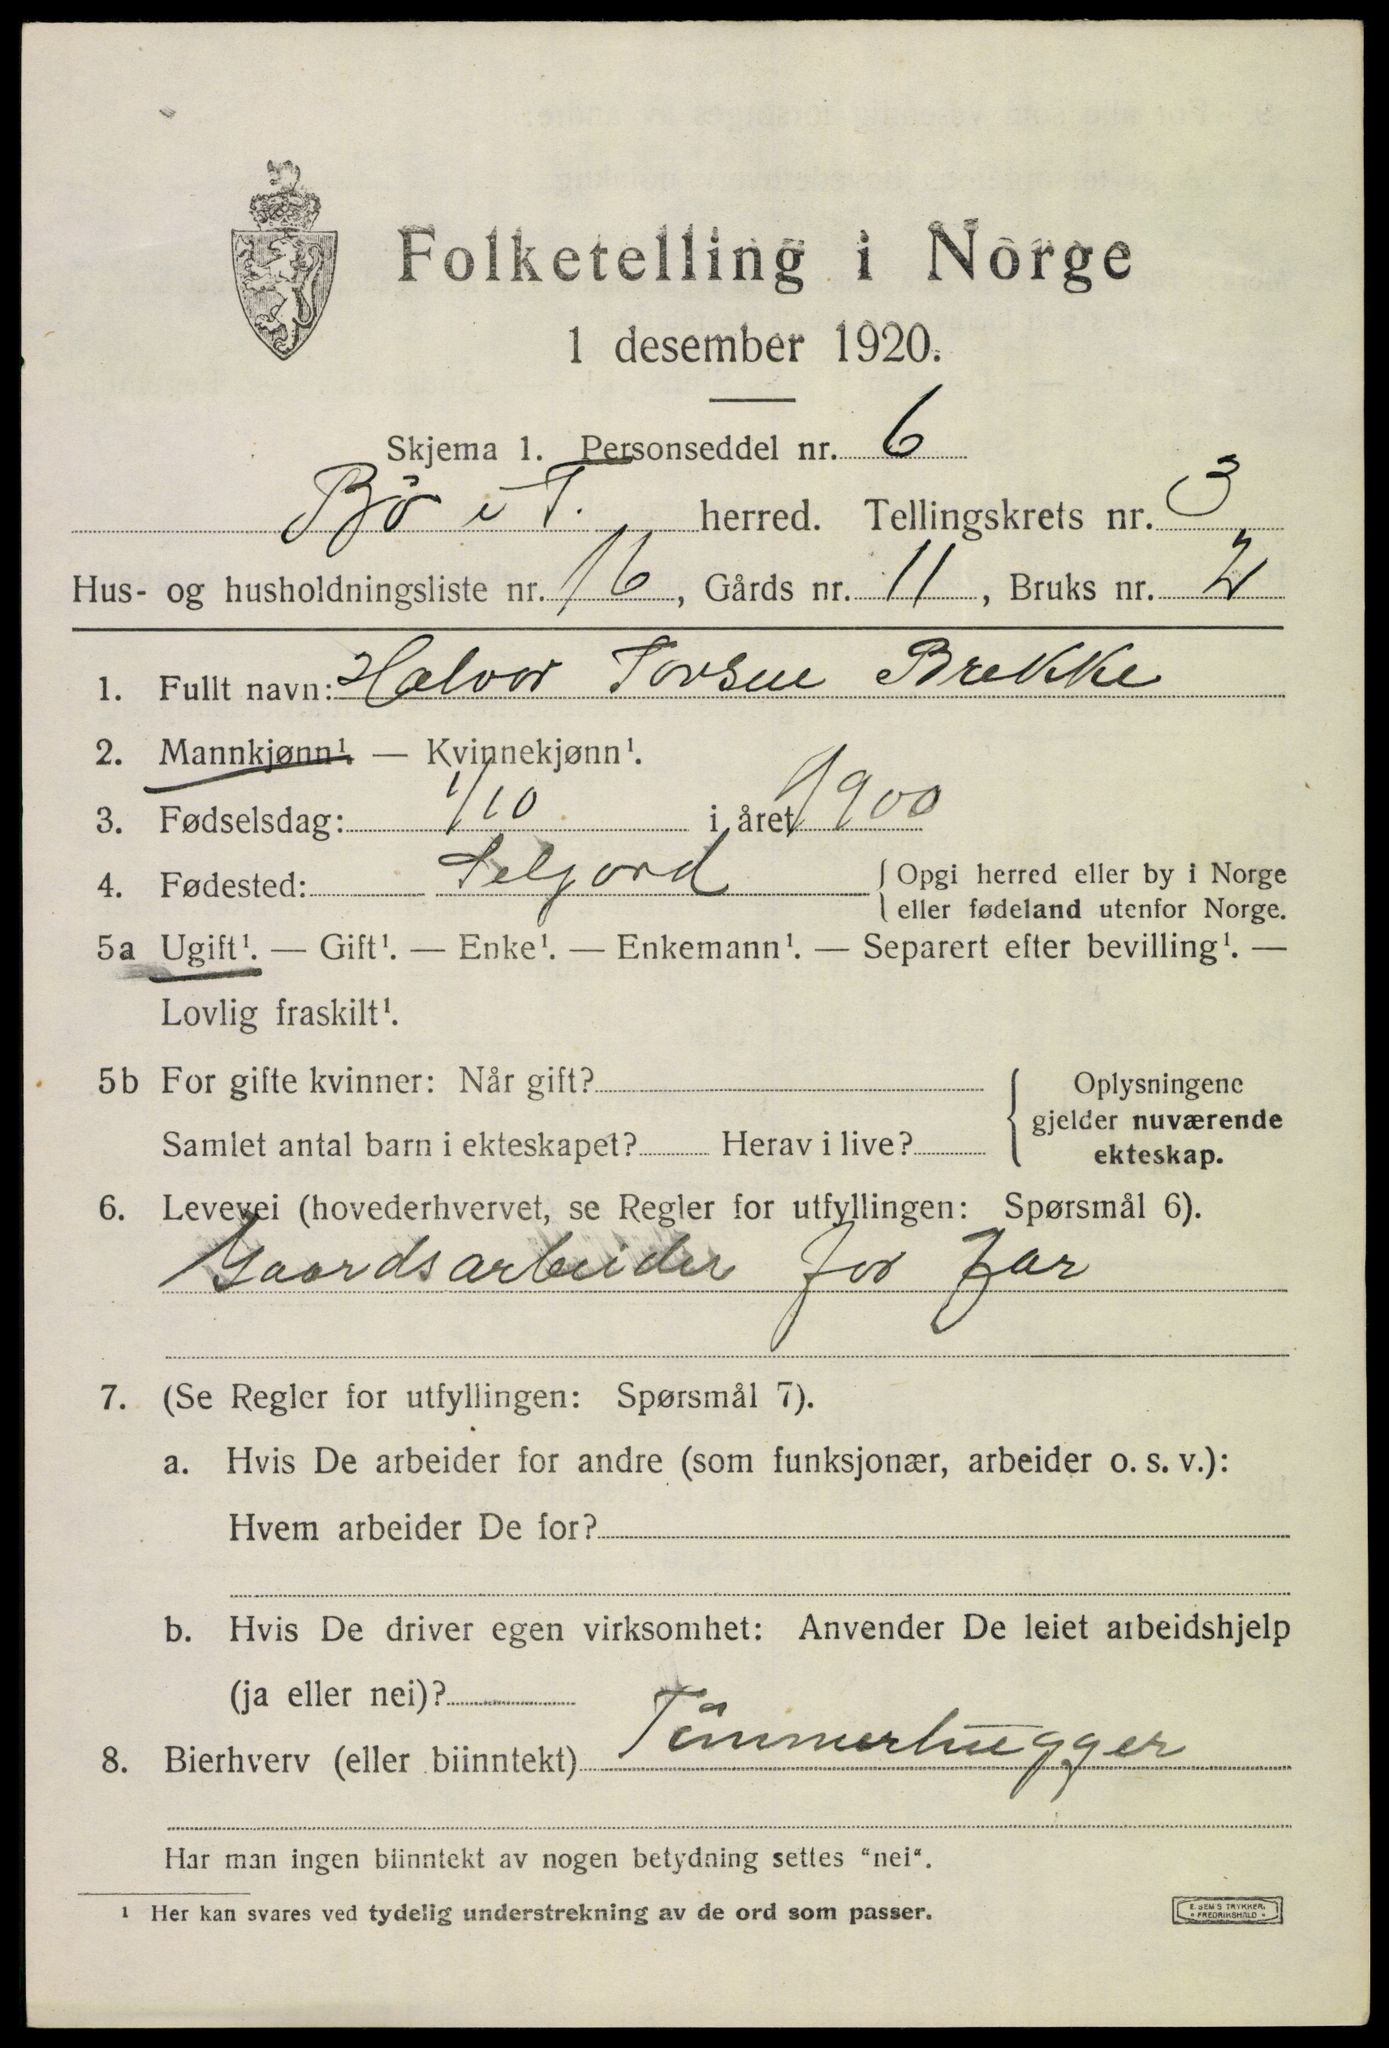 Folketelling i Norge
1 desember 1920.
Skjema 1. Personseddel nr. 6
Bø i T. herred. Tellingskrets nr. 3
Hus- og husholdningsliste nr. 16, Gårds nr. 11, Bruks nr. 2
1. Fullt navn: Halvor Torsen Brekke
2. Mannkjønn¹. — Kvinnekjønn¹.
3. Fødselsdag: 1/10 i året 1900
4. Fødested: Seljord { Opgi herred eller by i Norge
eller fødeland utenfor Norge.
5a Ugift¹. — Gift¹. — Enke¹. — Enkemann¹. — Separert efter bevilling¹. —
Lovlig fraskilt¹.
5b For gifte kvinner: Når gift? { Oplysningene
gjelder nuværende
Samlet antal barn i ekteskapet? Herav i live? ekteskap.
6. Levevei (hovederhvervet, se Regler for utfyllingen: Spørsmål 6).
Gaardsarbeider for far
7. (Se Regler for utfyllingen: Spørsmål 7).
a. Hvis De arbeider for andre (som funksjonær, arbeider o. s. v.):
Hvem arbeider De for?
b. Hvis De driver egen virksomhet: Anvender De leiet arbeidshjelp
(ja eller nei)?
8. Bierhverv (eller biinntekt) Tømmerhugger
Har man ingen biinntekt av nogen betydning settes "nei".
¹ Her kan svares ved tydelig understrekning av de ord som passer.
E. SEM'S TRYKKERI
* FREDRIKSHALD *